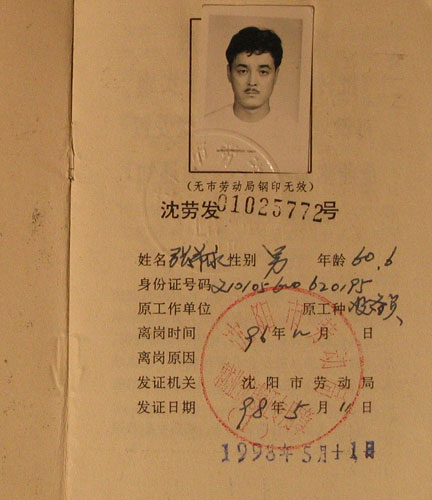 (无市劳动局钢印无效)
沈劳发01025772号
姓名 张 性别 男 年龄 60.6
身份证号码 210105600620195
原工作单位 原工种
离岗时间 96年 月 日
离岗原因
发证机关 沈阳市劳动局
发证日期 98年5月11日
1998年5月11日